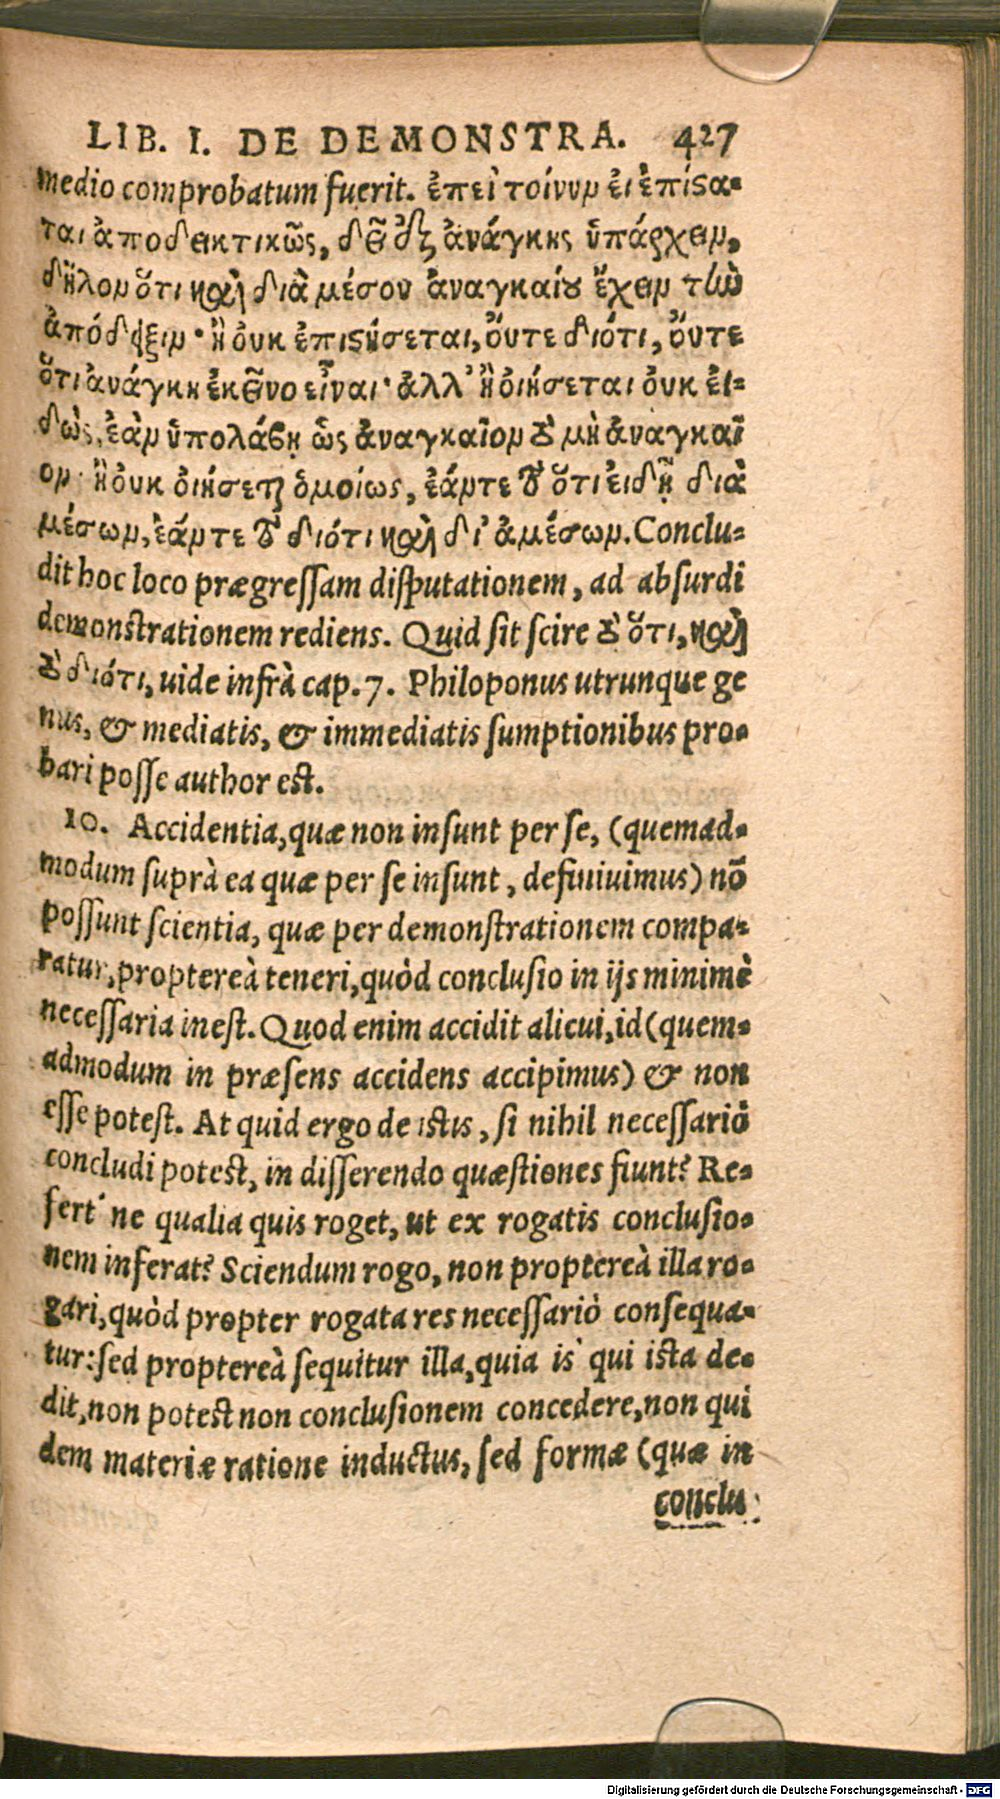 LIB. I. DE DEMONSTRA. 427
medio comprobatum fuerit. ἐπεὶ τοίνυν εἰ ἐπίστα-
ται ἀποδεικτικῶς, δεῖ ἐξ ἀνάγκης ὑπάρχειν,
δῆλον ὅτι καὶ διὰ μέσου ἀναγκαίου ἔχειν τὴν
ἀπόδειξιν· ἢ οὐκ ἐπιστήσεται, οὔτε διότι, οὔτε
ὅτι ἀνάγκη ἐκεῖνο εἶναι· ἀλλ' ἢ οἰήσεται οὐκ εἰ-
δὼς, ἐὰν ὑπολάβῃ ὡς ἀναγκαῖον τὸ μὴ ἀναγκαῖ
ον· ἢ οὐκ οἰήσεται ὁμοίως, ἐάντε τὸ ὅτι εἰδῇ διὰ
μέσων, ἐάντε τὸ διότι καὶ δι' ἀμέσων. Conclu-
dit hoc loco prægressam disputationem, ad absurdi
demonstrationem rediens. Quid sit scire τὸ ὅτι, καὶ
τὸ διότι, uide infrà cap. 7. Philoponus utrunque ge
nus, & mediatis, & immediatis sumptionibus pro-
bari posse author est.
10. Accidentia, quæ non insunt per se, (quemad-
modum suprà ea quæ per se insunt, definiuimus) nõ
possunt scientia, quæ per demonstrationem compa-
ratur, proptereà teneri, quòd conclusio in ijs minimè
necessaria inest. Quod enim accidit alicui, id (quem-
admodum in præsens accidens accipimus) & non
esse potest. At quid ergo de istis, si nihil necessariò
concludi potest, in disserendo quæstiones fiunt? Re-
fert' ne qualia quis roget, ut ex rogatis conclusio-
nem inferat? Sciendum rogo, non proptereà illa ro-
gari, quòd propter rogata res necessariò consequa-
tur: sed proptereà sequitur illa, quia is qui ista de-
dit, non potest non conclusionem concedere, non qui
dem materiæ ratione inductus, sed formæ (quæ in
conclu
Digitalisierung gefördert durch die Deutsche Forschungsgemeinschaft - DFG